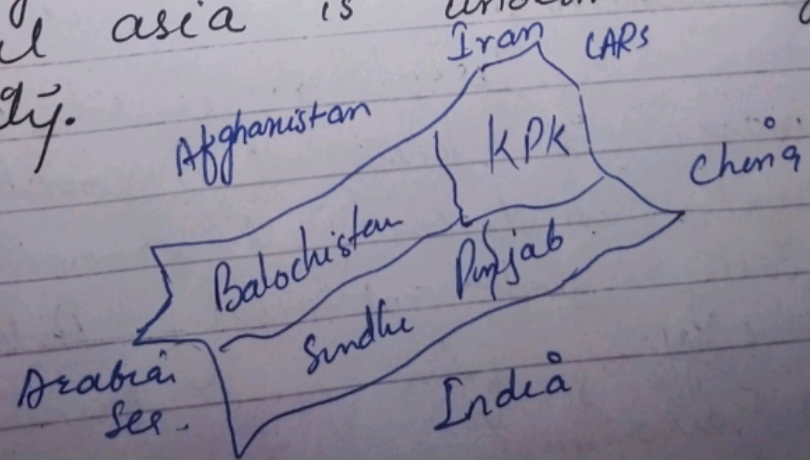 asia is
Iran
CARs
dy.
Afghanistan
KPK
China
Balochistan
Punjab
Sindh
Arabian
Sea.
India